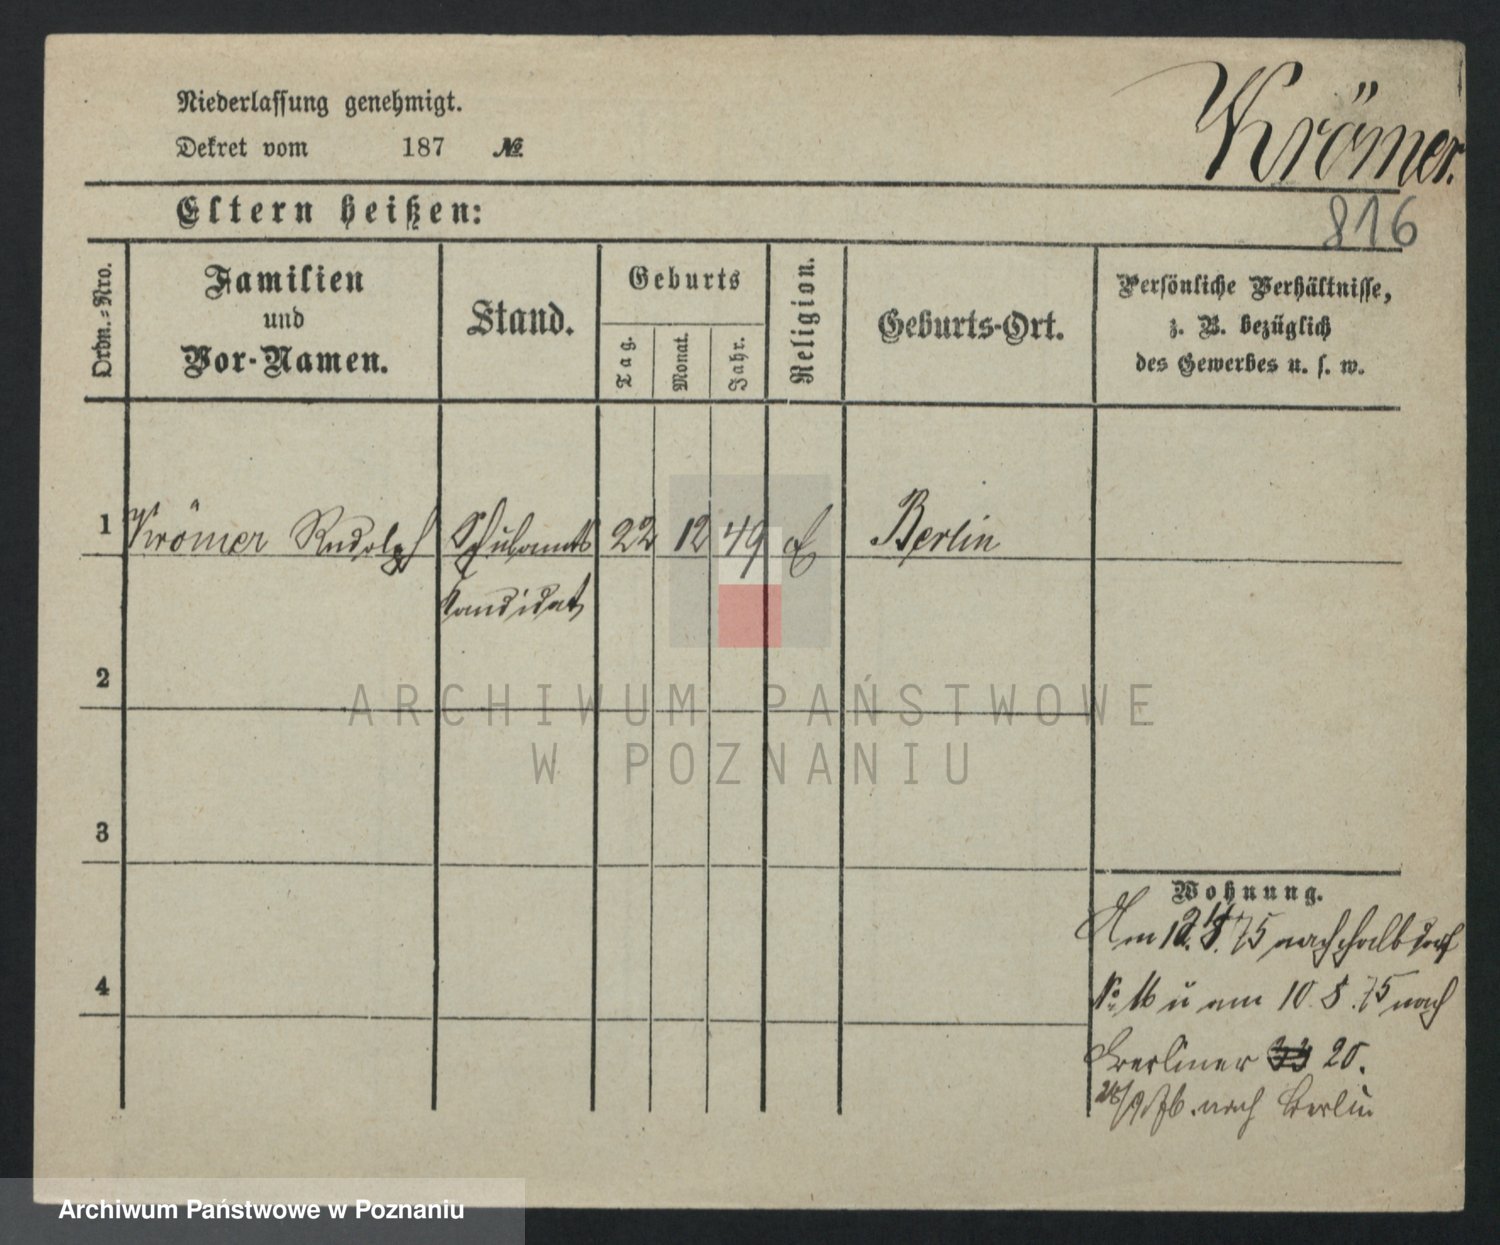 Niederlassung genehmigt.
Krömer.
Dekret vom 187 №
Eltern heißen:
816
Ordn.=Nro.
Familien
und
Vor-Namen.
Stand.
Geburts
Tag.
Monat.
Jahr.
Religion.
Geburts-Ort.
Persönliche Verhältnisse,
z. B. bezüglich
des Gewerbes u. s. w.
1 Krömer Rudolph Schulamts 22 12 49 Berlin
Kandidat
2
ARCHIWUM PAŃSTWOWE
W POZNANIU
3
Wohnung.
Am 75 nach Halbdorf
4
No 16 u am 10. 8. 75 nach
Berliner 20.
28/9 76. nach Berlin
Archiwum Państwowe w Poznaniu